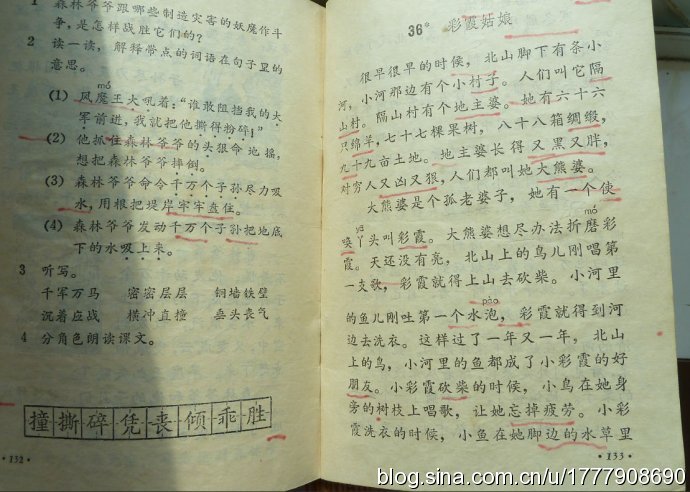 1 森林爷爷跟哪些制造灾害的妖魔作斗
争,是怎样战胜它们的?
2 读一读,解释带点的词语在句子里的
意思。
mó
(1) 风魔王大吼着:“谁敢阻挡我的大
军前进,我就把他撕得粉碎!”
(2) 他抓住森林爷爷的头狠命地摇,
想把森林爷爷摔倒。
(3) 森林爷爷命令千万个子孙尽力吸
水,用根把堤岸牢牢盘住。
(4) 森林爷爷发动千万个子孙把地底
下的水吸上来。
3 听写。
千军万马 密密层层 铜墙铁壁
沉着应战 横冲直撞 垂头丧气
4 分角色朗读课文。
撞撕碎凭丧倾乖胜
·132·
36* 彩霞姑娘
很早很早的时候,北山脚下有条小
河,小河那边有个小村子。人们叫它隔
山村。隔山村有个地主婆。她有六十六
只绵羊,七十七棵果树,八十八箱绸缎,
九十九亩土地。地主婆长得又黑又胖,
对穷人又凶又狠,人们都叫她大熊婆。
大熊婆是个孤老婆子,她有一个使
yā mó
唤丫头叫彩霞。大熊婆想尽办法折磨彩
霞。天还没有亮,北山上的鸟儿刚唱第
一支歌,彩霞就得上山去砍柴。小河里
pào
的鱼儿刚吐第一个水泡,彩霞就得到河
边去洗衣。这样过了一年又一年,北山
上的鸟,小河里的鱼都成了小彩霞的好
朋友。小彩霞砍柴的时候,小鸟在她身
旁的树枝上唱歌,让她忘掉疲劳。小彩
霞洗衣的时候,小鱼在她脚边的水草里
·133·
blog.sina.com.cn/u/1777908690